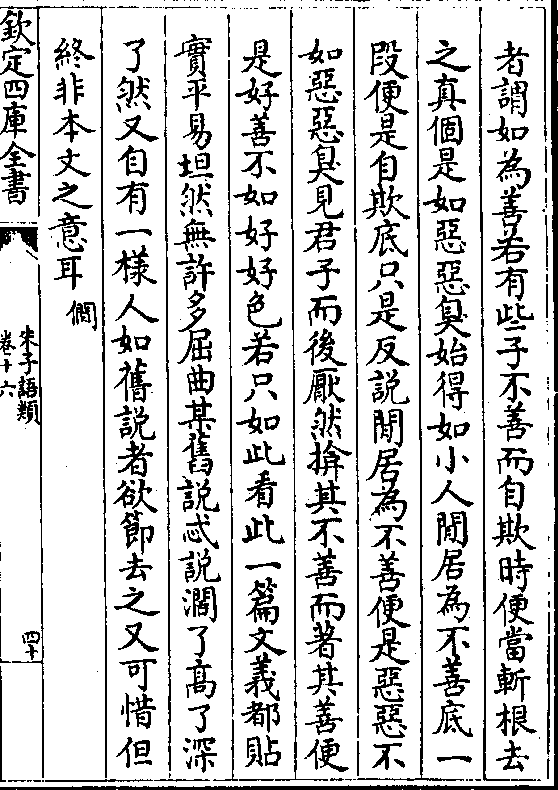 者謂如為善若有些子不善而自欺時便當斬根去
之真個是如惡惡臭始得如小人閒居為不善底一
段便是自欺底只是反說閒居為不善便是惡惡不
如惡惡臭見君子而後厭然揜其不善而著其善便
是好善不如好好色若只如此看此一篇文義都貼
實平易坦然無許多屈曲某舊說忒說濶了髙了深
了然又自有一樣人如舊說者欲節去之又可惜但
終非本文之意耳 僩
欽定四庫全書
朱子語類
卷十六
四十